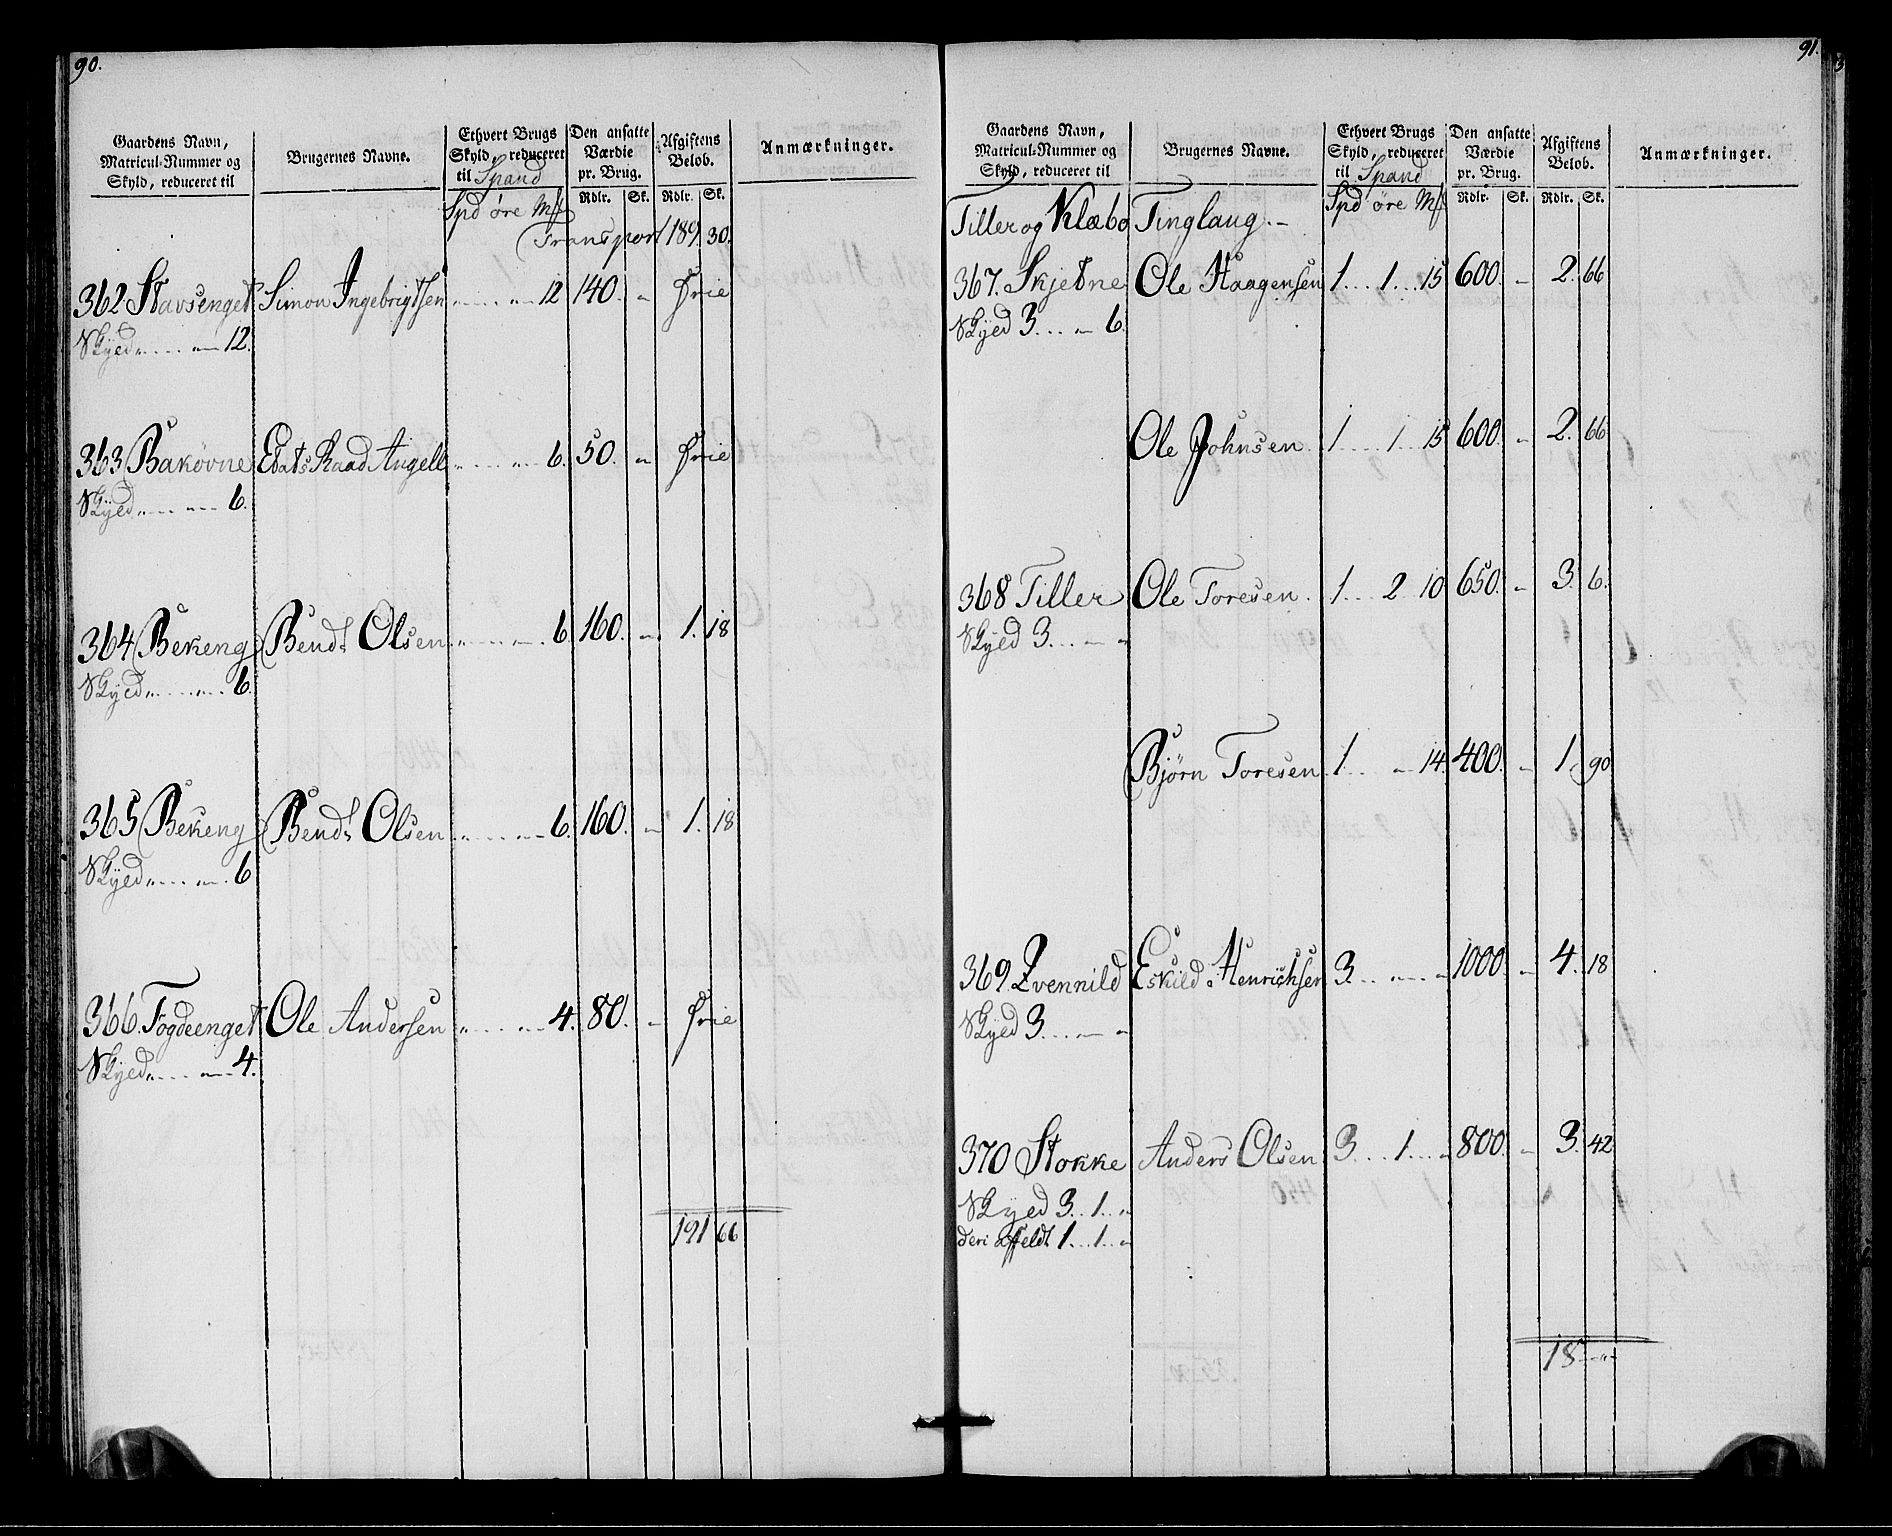 90.
Gaardens Navn, Matricul-Nummer og Skyld, reduceret til | Brugernes Navne. | Ethvert Brugs Skyld, reduceret til Spand | Den ansatte Værdie pr. Brug. | Afgiftens Belob. | Anmærkninger.
Rdlr. Sk. Rdlr. Sk.
Spd öre Mk
Transport 189. 30.
362 Stavsenget Simon Ingebrigtsen „ „ 12 140. „ Frie
Skyed „ „ 12.
363 Bakövne Raad Angell „ „ 6. 50. „ Frie
Skyed „ „ 6.
364 Bekeng Bendt Olsen „ „ 6 160. „ 1. 18
Skyed „ „ 6.
365 Bekeng Bendt Olsen „ „ 6. 160. „ 1. 18
Skyed „ „ 6
366. Fogdeenget Ole Andersen „ „ 4. 80. „ Frie
Skyed „ „ 4.
191 66
91.
Gaardens Navn, Matricul-Nummer og Skyld, reduceret til | Brugernes Navne. | Ethvert Brugs Skyld, reduceret til Spand | Den ansatte Værdie pr. Brug. | Afgiftens Belob. | Anmærkninger.
Rdlr. Sk. Rdlr. Sk.
Spd öre Mk
Tiller og Klæbo Tinglaug.-
367. Skjetne Ole Haagensen 1 1 15 600. „ 2. 66
Skyed 3 „ 6.
Ole Johnsen. 1 1 15 600. „ 2. 66
368 Tiller Ole Toresen. 1 2 10 650. „ 3. 6.
Skyed 3 „ „
Bjørn Toresen 1 „ 14. 400. „ 1. 90
369 Qvennild Eskild Henrichsen 3 „ „ 1000. „ 4. 18
Skyed 3 „ „
370 Stokke Anders Olsen 3 1 „ 800. „ 3. 42
Skyed 3. 1. „
deri affeldt 1 1 „
18 „